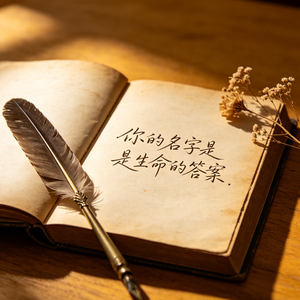 你的名字是
是生命的答案.